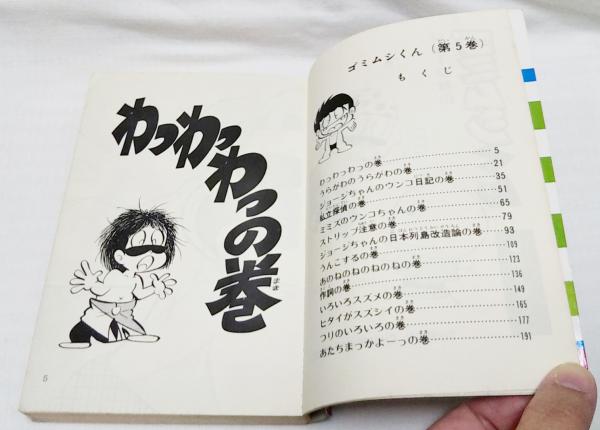 ゴミムシくん(第5巻)
もくじ
わっわっわっの巻……5
うらがわのうらがわの巻……21
ジョージちゃんのウンコ日記の巻……35
私立探偵の巻……51
ミミズのウンコちゃんの巻……65
ストリップ注意の巻……79
ジョージちゃんの日本列島改造論の巻……93
うんこするの巻……109
あのねのねのねのねの巻……123
作詞の巻……136
いろいろスズメの巻……149
ヒタイがスズシイの巻……165
つりのいろいろの巻……177
あたちまっかよーっの巻……191
わっわっわっの巻
5